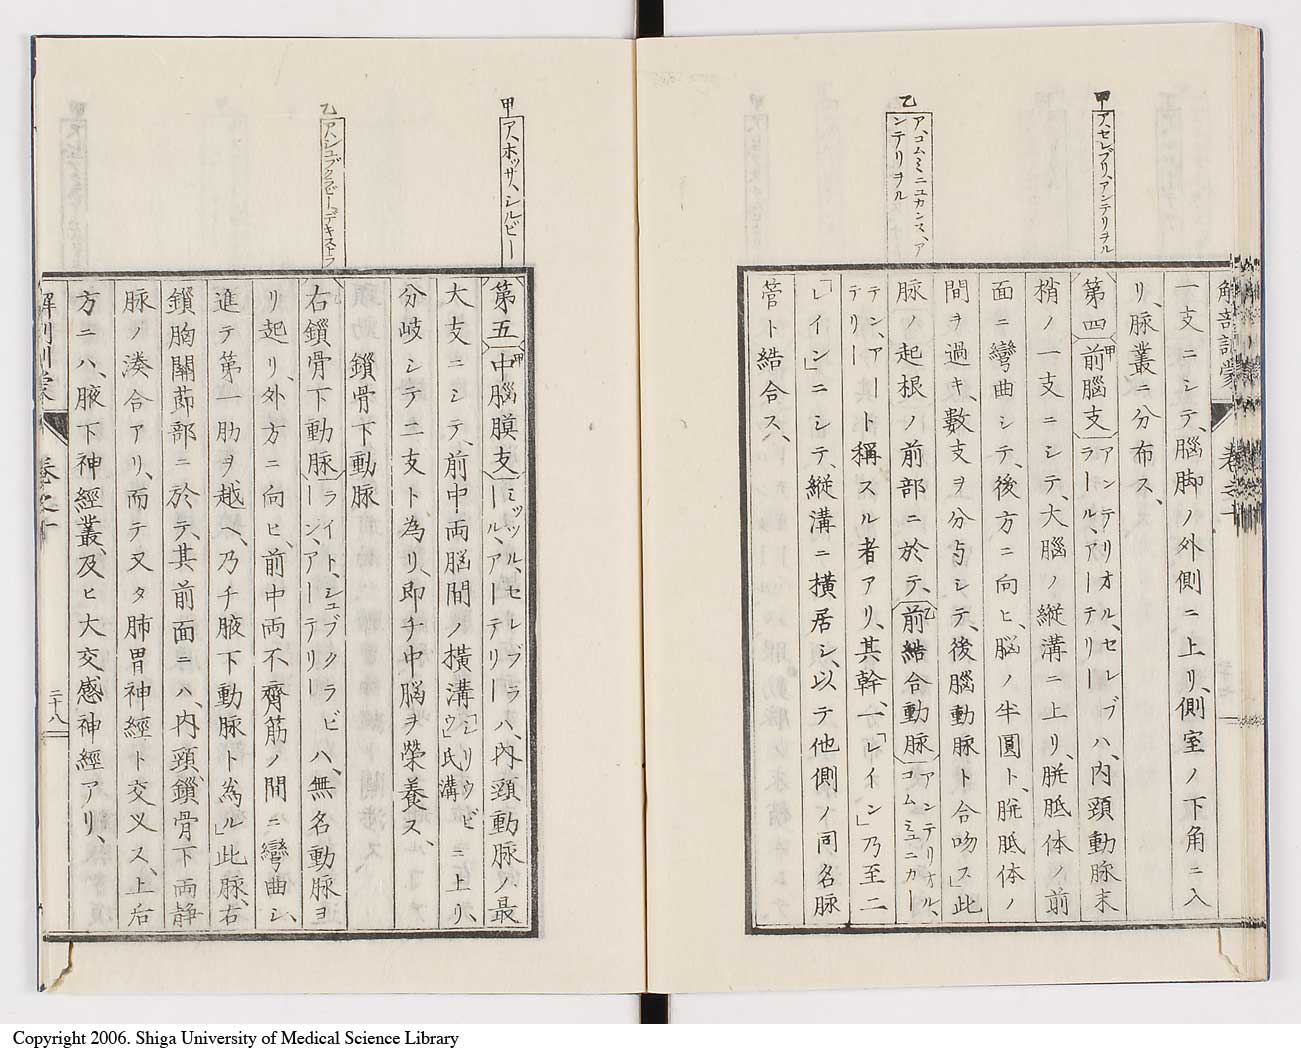 甲
ア、セレブリ、アンテリヲル
乙
ア、コムミニュカンス、ア
ンテリヲル
解剖訓蒙
卷之十
一支ニシテ、腦脚ノ外側ニ上リ、側室ノ下角ニ入
リ、脉叢ニ分布ス、
第四 甲 前腦支 アンテリオル、セレブ
ラール、アーテリー ハ、内頸動脉末
梢ノ一支ニシテ、大腦ノ縱溝ニ上リ、胼胝体ノ前
面ニ彎曲シテ、後方ニ向ヒ、腦ノ半圓ト、胼胝体ノ
間ヲ過キ、數支ヲ分与シテ、後腦動脉ト合吻ス」此
脉ノ起根ノ前部ニ於テ、乙 前結合動脉 アンテリオル、
コムミュニカー
テン、アー
テリー ト稱スル者アリ、其幹、一「レイン」乃至二
「レイン」ニシテ、縱溝ニ橫居シ、以テ他側ノ同名脉
管ト結合ス、
甲
ア、ホッサ、シルビー
乙
ア、シュブクラビー、デキストラ
第五 甲 中腦膜支 ミッヅル、セレブラ
ール、アーテリー ハ、内頸動脉ノ最
大支ニシテ、前中両腦間ノ橫溝 「シリウビ
ウ」氏溝 ニ上リ、
分岐シテ二支ト、為リ、即チ中腦ヲ榮養ス、
鎖骨下動脉
右鎖骨下動脉 ライト、シュブクラビ
ーン、アーテリ ハ、無名動脉ヨ
リ起リ、外方ニ向ヒ、前中両不齊筋ノ間ニ彎曲シ、
進テ第一肋ヲ越ヘ、乃チ腋下動脉ト為ル」此脉、右
鎖胸關莭部ニ於テ、其前面ニハ、内頸、鎖骨下両静
脉ノ湊合アリ、而テ又タ肺胃神經ト交叉ス、上后
方ニハ、腋下神經叢、及ヒ大交感神經アリ、
解剖訓蒙
卷之十
二十八
Copyright 2006. Shiga University of Medical Science Library